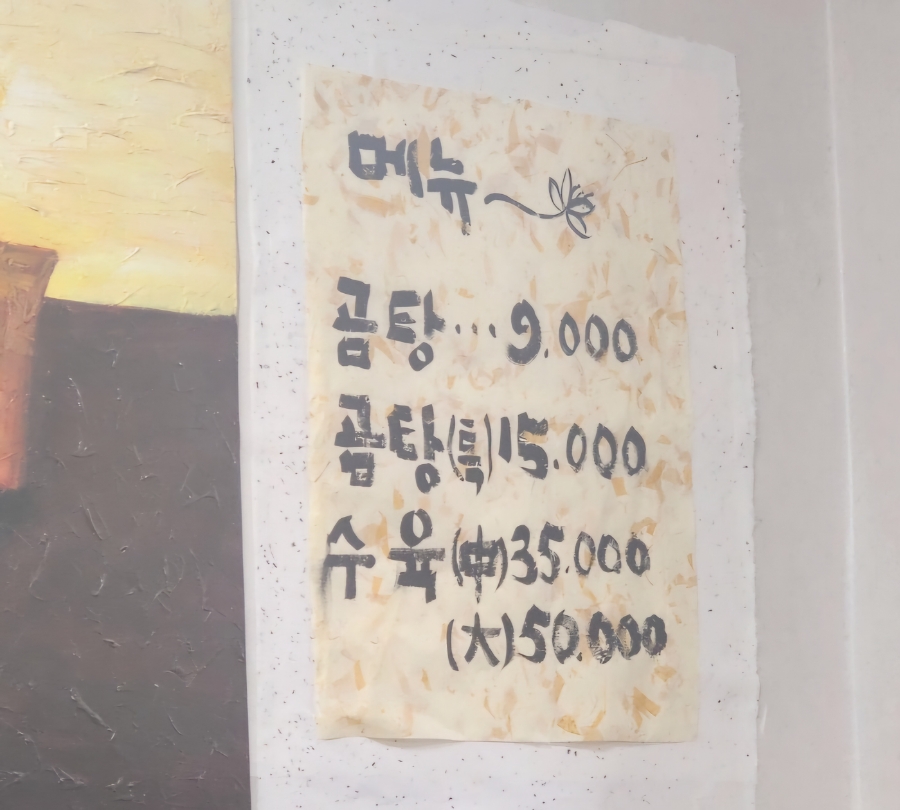 메뉴
곰탕…9.000
곰탕(특)15.000
수육(中)35.000
(大)50.000